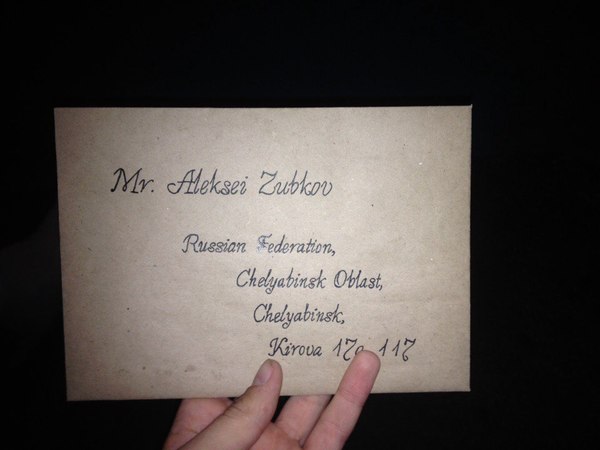 Mr. Aleksei Zubkov
Russian Federation,
Chelyabinsk Oblast,
Chelyabinsk,
Kirova 17a 117